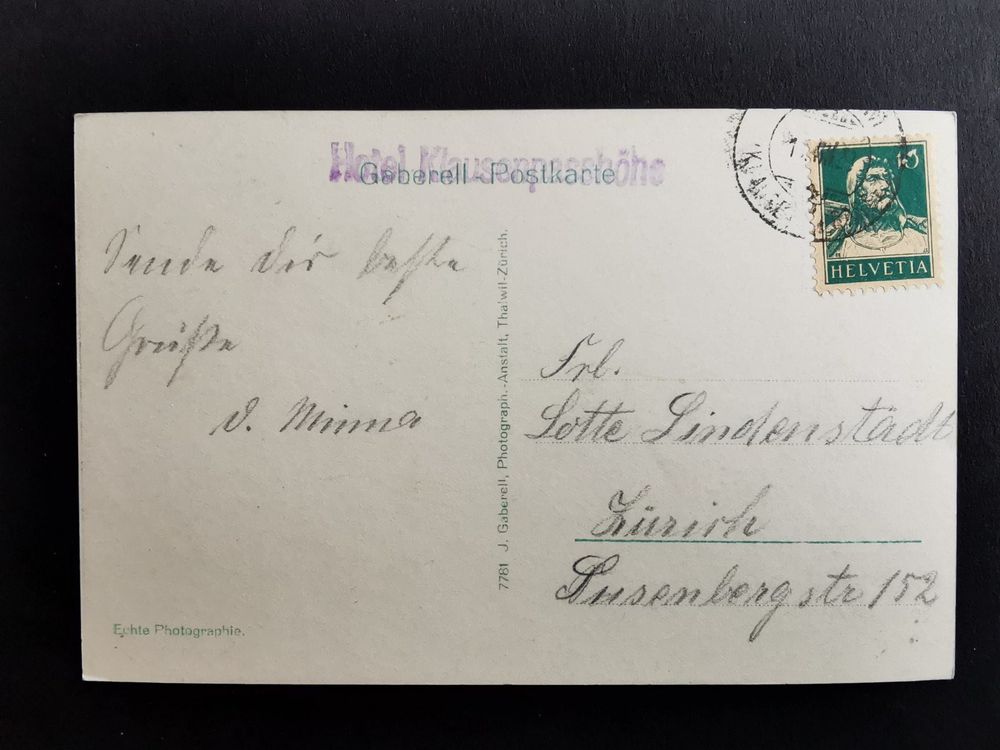 Hotel Klausenpasshöhe
Gaberell-Postkarte
10
HELVETIA
Sende dir beste
Grüße
d. Minna
7781 J. Gaberell, Photograph.-Anstalt, Thalwil-Zürich.
Frl.
Lotte Lindenstädt
Zürich
Susenbergstr 152
Echte Photographie.